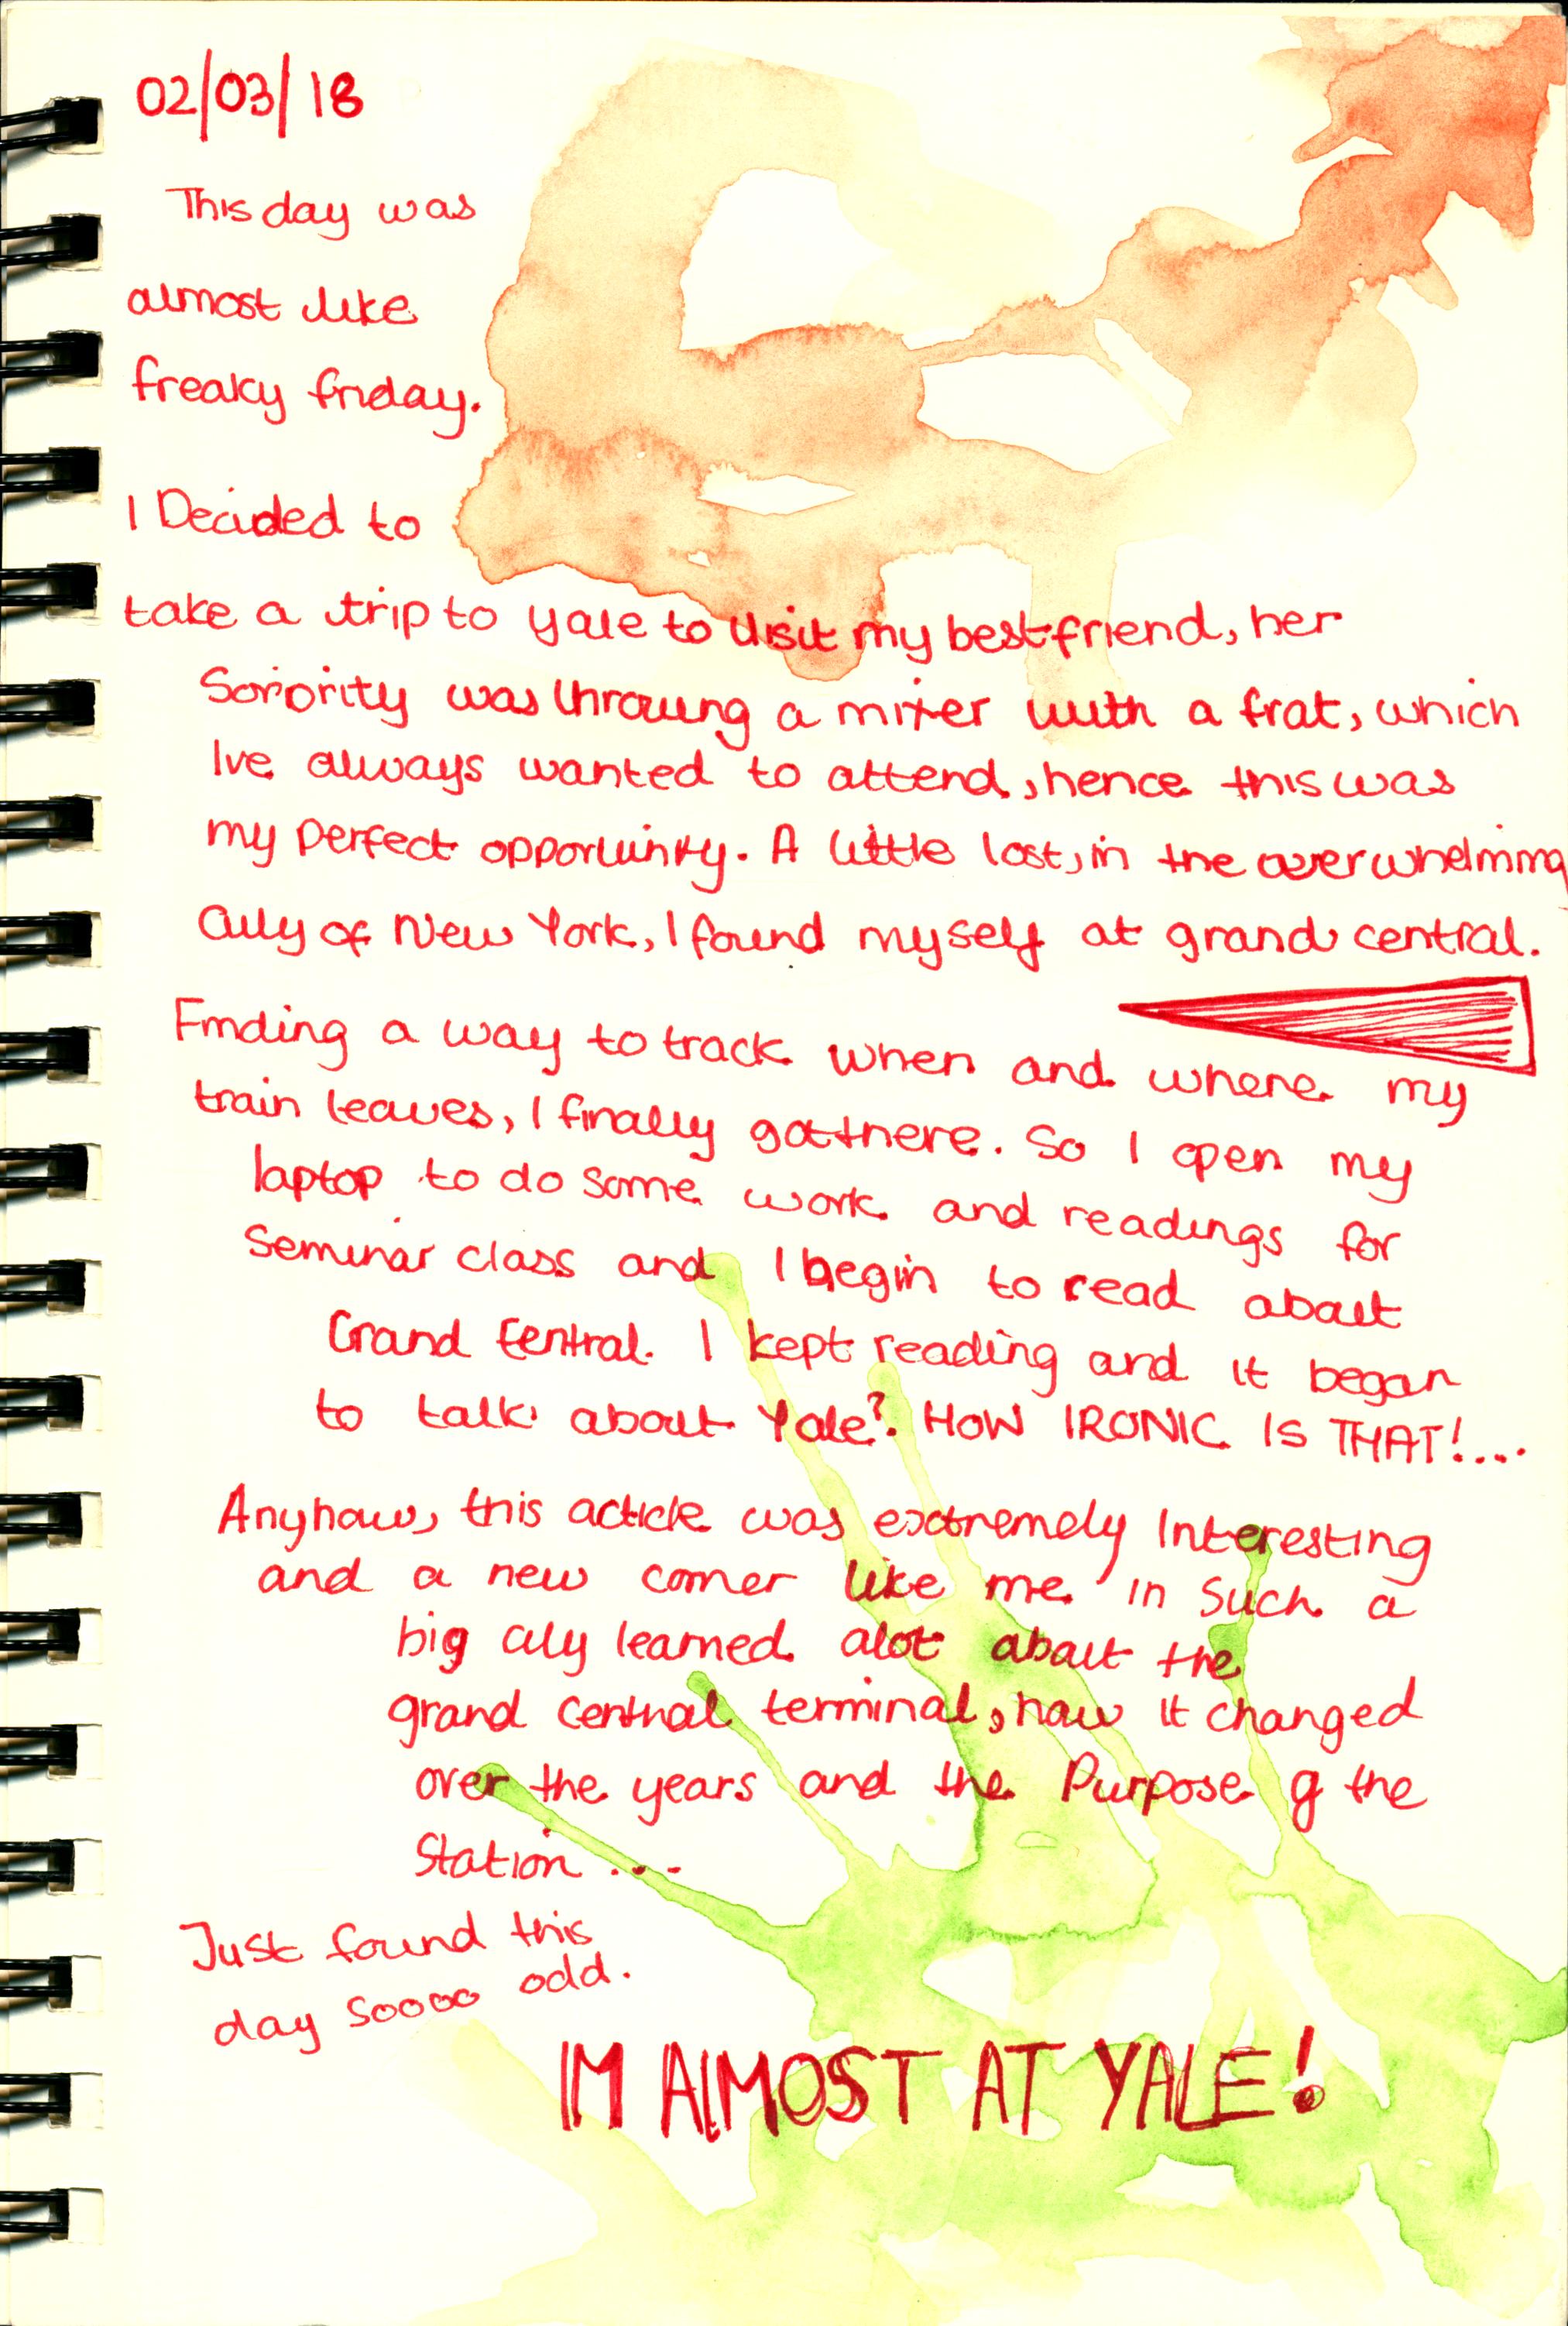 02/03/18
This day was
almost like
freaky friday.
I Decided to
take a trip to Yale to visit my bestfriend, her
Soriority was throwing a mixer with a frat, which
Ive always wanted to attend, hence this was
my perfect opportuinty. A little lost, in the overwhelming
City of New York, I found myself at grand central.
Finding a way to track when and where my
train leaves, I finally got there. So I open my
laptop to do some work and readings for
Seminar class and I begin to read about
Grand Central. I kept reading and it began
to talk about Yale? HOW IRONIC IS THAT!....
Anyhow, this article was extremely Interesting
and a new comer like me in such a
big city learned alot about the
grand central terminal, how it changed
over the years and the Purpose of the
Station ...
Just found this
day soooo odd.
IM ALMOST AT YALE!